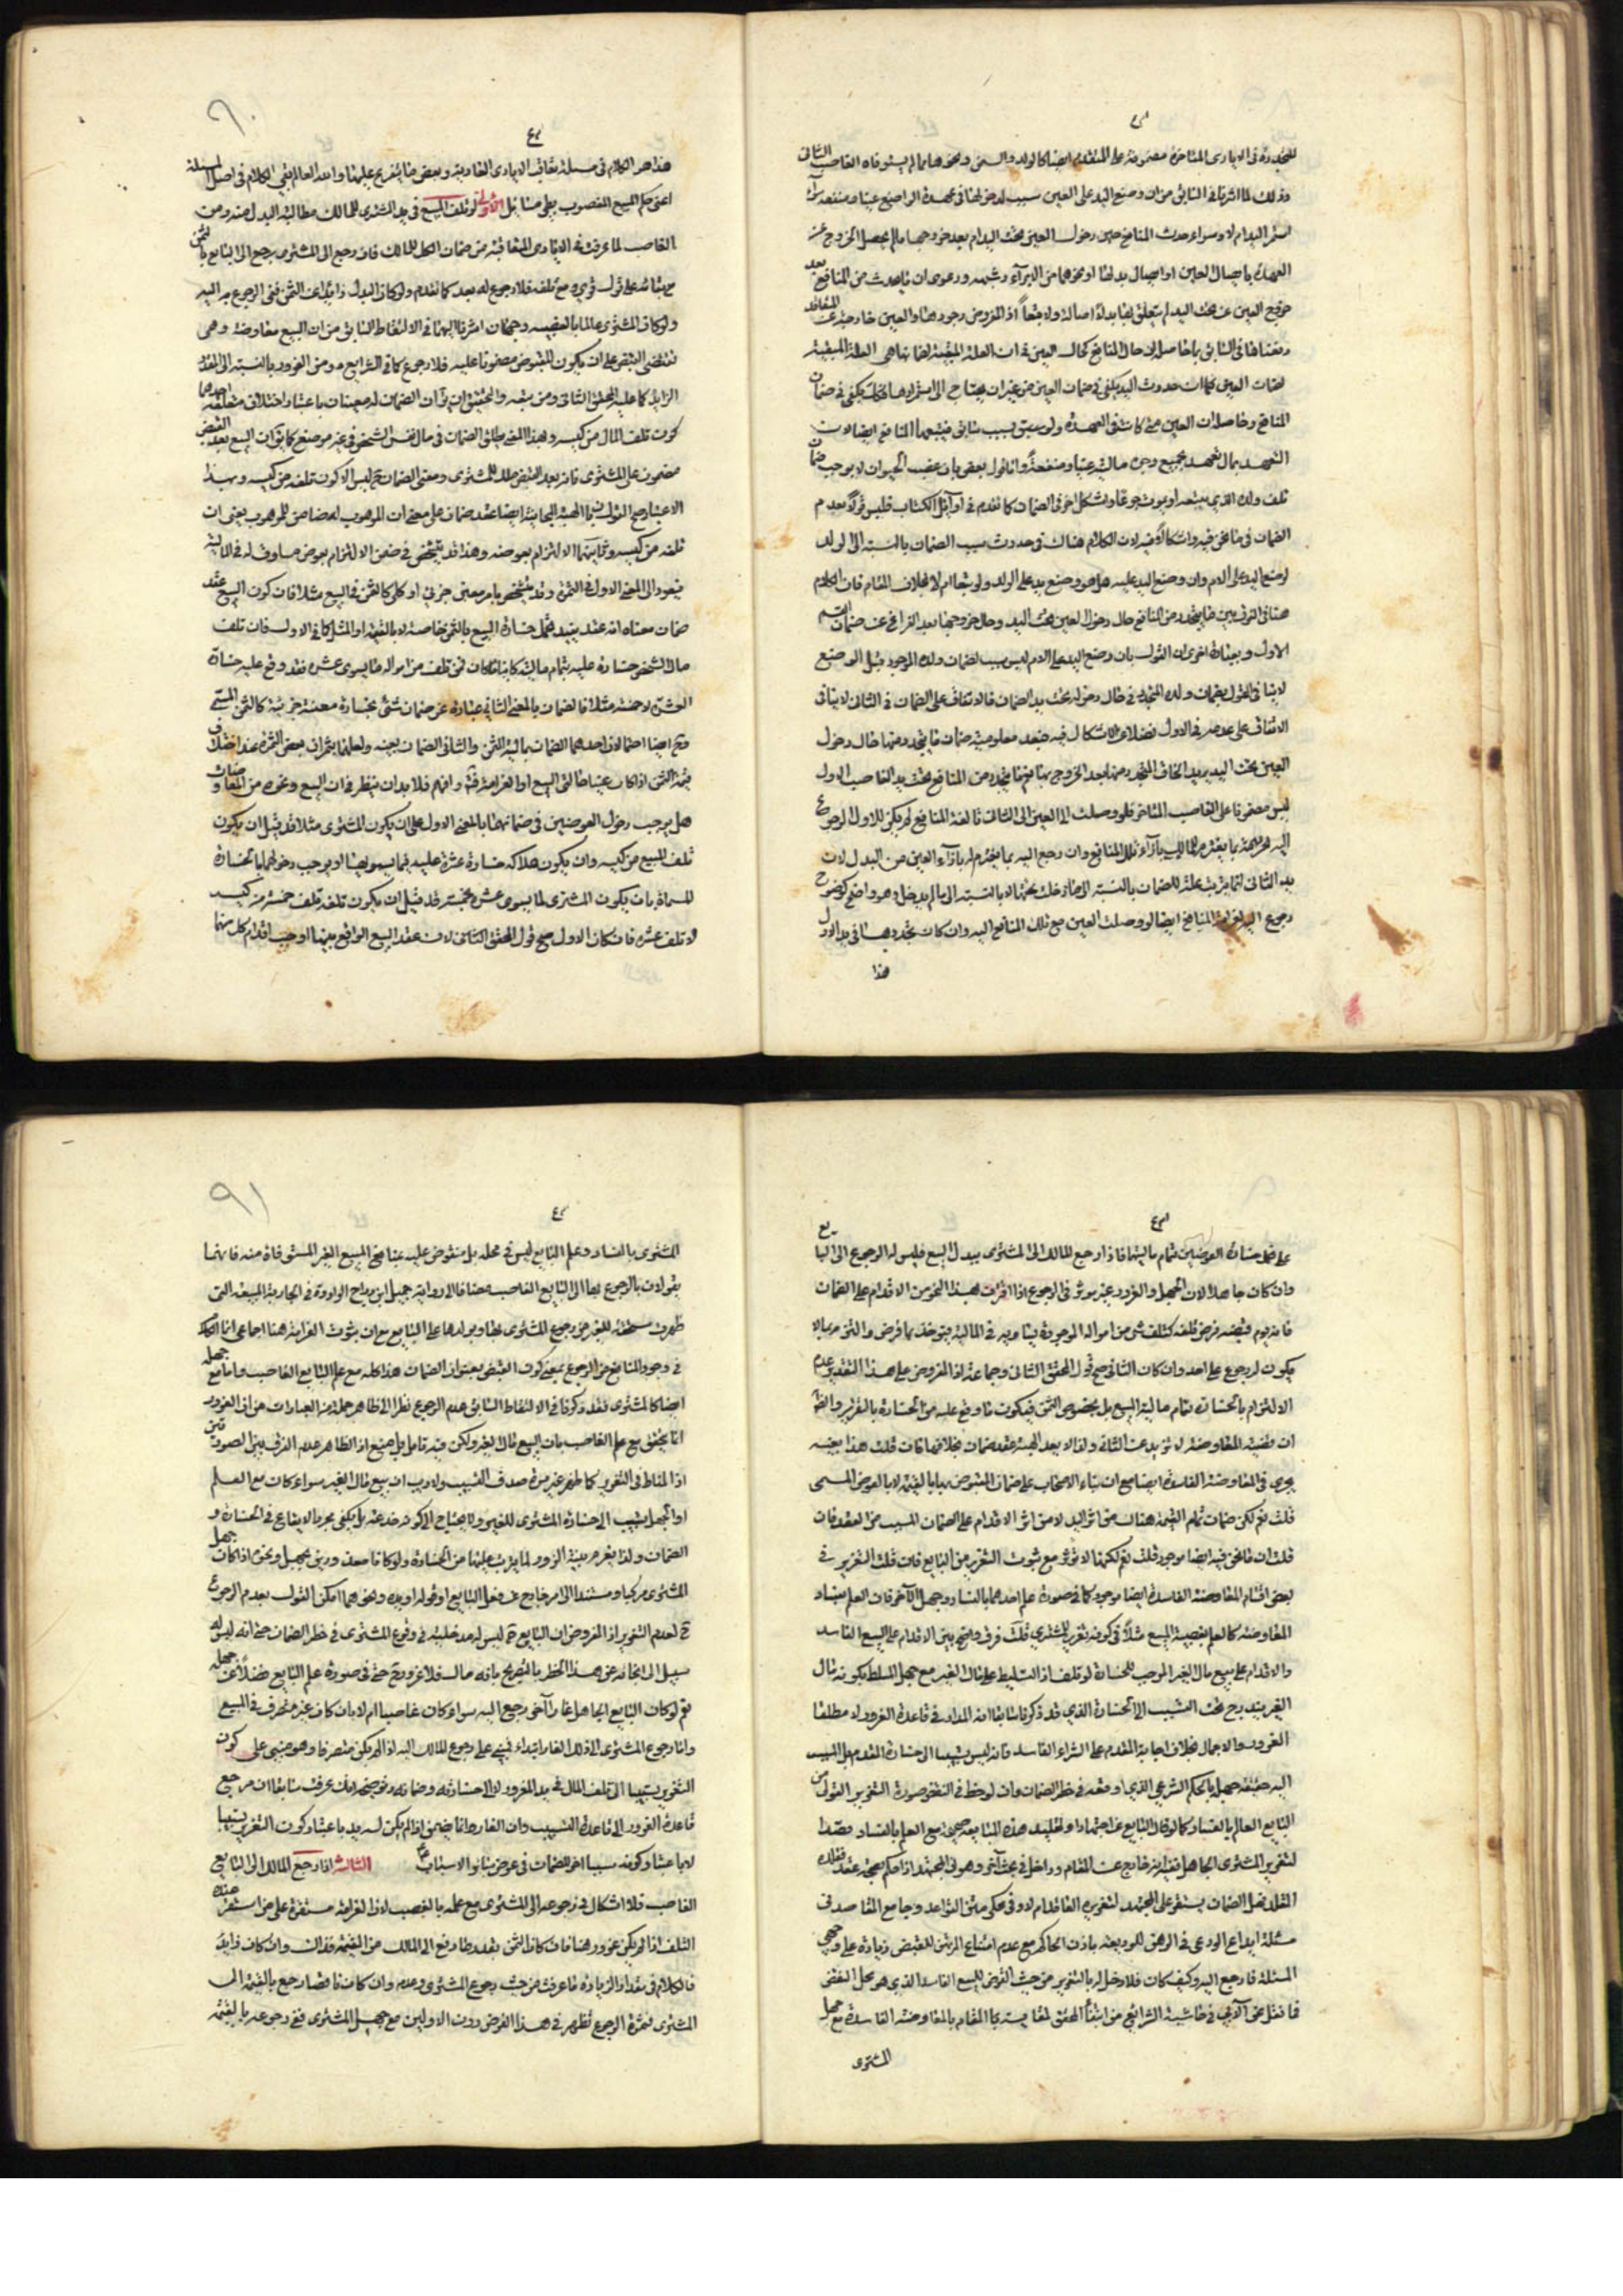 المتجددة في الايادى المتأخرة مضمونة على المتقدم ايضا كالولد والسمن ونحوهما مما لم يستوفاه الغاصب الثانى
وذلك لما اشرنا في السابق من ان وضع اليد على العين سبب لدخولها في عهدة الواضع عينا ومنفعة سواء
استمر اليد ام لا وسواء حدث المنافع حين دخول العين تحت اليد ام بعد خروجها ما لم يحصل الخروج عن
العهدة بايصال العين او ايصال بدلها او نحوهما من الابراء وشبهه ودعوى ان ما يحدث من المنافع بعد
خروج العين عن تحت اليد لم يتعلق بها يد لا اصالة ولا تبعا اذ المفروض وجودها والعين خارجة عن
لضمان العين فكما ان حدوث اليد يكفي في ضمان العين من غير ان يحتاج الى استمرارها فكك يكفي في ضمان
التعهد بمال تعهد بجميع وجوه مالية عينا ومنفعة
تلف ولده الذي يتبعه او يموت جوعا وتشكل اخر في الضمان كما تقدم في اوائل الكتاب فليس قولا بعدم
الضمان في ما نحن فيه واشكالا فيه لان الكلام هناك في حدوث سبب الضمان بالنسبة الى الولد
لوضع اليد على الام وان وضع اليد عليه هل هو وضع يد على الولد ولو تبعا ام لا بخلاف المقام فان الكلام
هنا في الفرق بين ما يتجدد من المنافع حال دخول العين تحت اليد وحال خروجها بعد الفراغ عن ضمان القسم
الاول وبعبارة اخرى ان القول بان وضع اليد على الام ليس سبب لضمان ولده الموجود قبل الوضع
لا ينافى القول بضمان ولده المتجدد في حال دخوله تحت يد الضمان فالاتفاق على الضمان في الثانى لا ينافى
الاتفاق على عدمه في الاول فضلا عن الاشكال فيه فبعد معلومية ضمان ما يتجدد منها حال دخول
العين تحت اليد يريد الحاق المتجدد منها بعد الخروج بها
ليس مضمونا على الغاصب المتأخر فلو وصلت الى العين الى الثانى تالفة المنافع لم يكن للاول الرجوع
اليه بما يغترم للمالك بازاء تلك المنافع وان رجع اليه بما يغترم له بازاء العين من البدل لان
يد الثانى انما يترتب عليه الضمان بالنسبة الى ما دخلت تحتها لا بالنسبة الى ما لم يدخل وهو واضح كوضوح
رجوع اليه بغرامة المنافع ايضا لو وصلت العين مع تلك المنافع اليه وان كان تجددها في يد الاول
هذا
٩٠
هذا هو الكلام في مسئلة تعاقب الايادى العادية وبعض ما يتفرع عليها والله العالم بقي الكلام في اصل المسئلة
اعنى حكم المبيع المغصوب بعلى مسائل الاولى لو تلف المبيع في يد المشترى للمالك مطالبة البدل منه ومن
الغاصب لما عرفت في الايادى المتعاقبة من ضمان الكل للمالك فان رجع الى المشترى يرجع الى البايع بالثمن
مع بقائه على قول قوى ومع تلفه فلا رجوع له بعد كما تقدم ولو كان البدل زائدا عن الثمن ففى الرجوع به اليه
ولو كان المشترى عالما بالغصبية وجهان اشرنا اليهما في الالتقاط السابق من ان البيع معاوضة وهى
تقتضى القبض على ان يكون المقبوض مضمونا عليه فلا رجوع كما في الشرايع ومن الغرور بالنسبة الى القدر
الزايد كما عليه المحقق الثانى ومن تبعه والتحقيق ان يق ان الضمان له معينان باعتبار اختلاف متعلقه احدهما
كون تلف المال من كيسه وبهذا المعنى يطلق الضمان في مال نفس الشخص في غير موضع كما يق ان المبيع بعد القبض
مضمون على المشترى فانه بعد القبض ملك للمشترى ومعنى الضمان ح ليس الا كون تلفه من كيسه وبهذا
الاعتبار صح القول ان الهبة المجانية ايضا عقد ضمان على معنى ان الموهوب له ضامن للموهوب يعنى ان
تلفه من كيسه وثانيهما الالتزام بعوضه وهذا قد يتشخص في ضمن الالتزام بعوض مساو له في المالية
فيعود الى المعنى الاول في الثمرة وقد يتشخص بامر معين جزئى او كلى كالثمن في البيع مثلا فان كون البيع عقد
ضمان معناه انه عقد يفيد تحمل خسارة المبيع بالثمن خاصة لا بالقيمة او المثل كما في الاول فان تلف
مال الشخص خسارة عليه بتمام مالية كاينا ما كان فمن تلف من امواله ما يسوى عشرة فقد وقع عليه خسارة
العشرة لا خمسة مثلا فالضمان بالمعنى الثانى عبارة عن ضمان شئ بخسارة معينة جزئية كالثمن المسمى
هل يوجب دخول العوضين في ضمانهما بالمعنى الاول على ان يكون المشترى مثلا قد قبل ان يكون
تلف المبيع من كيسه وان يكون هلاكه خسارة عشرة عليه فيما يسويها او يوجب دخولهما بالخسارة
المسماة بان يكون المشترى لما يسوى عشرة بخمسة قد قبل ان يكون تلفه تلف خمسة من كيسه
لا تلف عشرة فان كان الاول صح قول المحقق الثانى لان عقد البيع الواقع بينهما اوجب اقدام كل منهما
على ضمان خسارة العوضين بتمام ماليتهما فاذا رجع المالك الى المشترى ببدل المبيع فليس له الرجوع الى البايع
وان كان جاهلا لان الجهل والغرور غير مؤثر في الرجوع اذا اقترن بهذا النحو من الاقدام على الضمان
فانه يوم قبضه فرض تلفه كتلف شئ من امواله الموجودة يساويه في المالية فيؤخذ بما فرض والتزم به بالا
يكون له رجوع على احد وان كان الثانى صح قول المحقق الثانى وجماعة اذ المفروض على هذا التقدير عدم
الالتزام بالخسارة بتمام مالية المبيع بل بخصوص الثمن فيكون ما وقع عليه من الخسارة بالتغرير والظ
ان قضية المعاوضة لا تزيد عن الثانى ولذا لا يعد الهبة عقد ضمان بخلافها فان قلت هذا بعينه
يجرى في المعاوضة الفاسدة ايضا مع ان بناء الاصحاب على ضمان المقبوض بها بالقيمة لا بالعوض المسمى
قلت نعم لكن ضمان تمام القيمة هناك من اثر اليد لا من اثر الاقدام على الضمان المسبب من العقد فان
قلت ان ما نحن فيه ايضا موجود قلت نعم لكنها لا تؤثر مع ثبوت التغرير من البايع فان قلت التغرير في
بعض اقسام المعاوضة الفاسدة ايضا موجود كما في صورة علم احدهما بالفساد وجهل الآخر فان العلم بفساد
المعاوضة كالعلم بغصبية المبيع مثلا في كونه تغريرا للمشترى قلت فرق واضح بين الاقدام على البيع الفاسد
والاقدام على بيع مال الغير الموجب للخسارة لو تلف اذ التسليط على مال الغير مع جهل المسلط بكونه مال
الغير يندرج تحت التسبيب الى الخسارة الذي قد ذكرنا سابقا انه المدار في قاعدة الغرور لا مطلقا
الغرور والاجمال بخلاف اجابة المقدم على الشراء الفاسد فانه ليس تسبيبا الى خسارة المقدم بل السبب
اليه حقيقة جهله بالحكم الشرعي الذي اوقعه في خطر الضمان وان لوحظ في النقض صورة التغرير القولى من
البايع العالم بالفساد كما لو قال البايع عن اجتهاد او تقليد هذه المبايعة صحيحة مع العلم بالفساد قصدا
لتغرير المشترى الجاهل فنقول انه خارج عن المقام وداخل في بحث آخر وهو ان المجتهد اذا حكم بصحة عقد فقلده
المقلد فهل الضمان يستقر على المجتهد لتغريره العاقد ام لا وفي محكى متن القواعد وجامع المقاصد في
مسئلة ايداع الودعى في الرهن للوديعة باذن الحاكم مع عدم امتناع المرتهن للقبض زيادة على وجهى
المسئلة فارجع اليه وكيف كان فلا دخل له بالتغرير من حيث القرض للبيع الفاسد الذي هو محل النقض
فما نقل عن الآبى في حاشية الشرائع من ابتناء المحقق لمقايسة المقام بالمعاوضة الفاسدة مع جهل
المشترى
٩١
المشترى بالفساد وعلم البايع ليس في محله بل منقوض عليه بمنافع المبيع الغير المستوفاة منه فانهما
يقولان بالرجوع بها الى البايع الغاصب مضافا الى رواية جميل ابن دراج الواردة في الجارية المبيعة التى
ظهرت مستحقة للغير من رجوع المشترى بها وبولدها على البايع مع ان ثبوت الغرامة هنا اجماعى انما الكلام
في وجود المانع من الرجوع بمعنى كون القبض بعنوان الضمان هذا كله مع علم البايع الغاصب واما مع جهله
ايضا كالمشترى فقد ذكرنا في الالتقاط السابق عدم الرجوع نظرا الى ظاهر جملة من العبارات من ان الغرور
انما يتحقق مع علم الغاصب بان المبيع مال الغير ولكن فيه تامل بل منع اذ الظاهر عدم الفرق بين الصورتين
اذ المناط في التغرير كما ظهر غير مرة صدق التسبيب ولا ريب ان بيع مال الغير سواء كان مع العلم
او الجهل تسبيب الى خسارة المشترى للغير ولا يحتاج الى كونه خدعة بل يكفى مجرد الايقاع في الخسارة و
الضمان ولذا يغرم بينة الزور لما يترتب عليها من الخسارة ولو كانا معذورين بجهل ونحوه اذا كان جهل
المشترى مركبا ومستندا الى امر خارج عن فعل البايع او قوله او يده ونحوهما امكن القول بعدم الرجوع
ح لعدم التغرير اذ المفروض ان البايع ح ليس له مدخلية في وقوع المشترى في خطر الضمان حتى انه ليس له
سبيل الى انجائه عن هذا الخطر بالتصريح بانه مال فلا غرور ح حتى في صورة علم البايع فضلا عن جهله
نعم لو كان البايع الجاهل غارا آخر رجع اليه سواء كان غاصبا ام لا بان كان غير متصرف في المبيع
واما رجوع المشترى الى ذلك الغار ابتداء فيبتنى على رجوع المالك اليه اذا لم يكن متصرفا وهو مبنى على كون
التغرير تسبيبا الى تلف المال في يد المغرور لا الى خسارته وضمانه وتوضيح ذلك عرفت سابقا ان مرجع
قاعدة الغرور الى قاعدة التسبيب وان الغار هل انما يضمن اذا لم يكن له يد باعتبار كون التغرير تسبيبا
لا باعتبار كونه سببا اخر للضمان في عرض سائر الاسباب الثالثة اذا رجع المالك الى البايع
الغاصب فلا اشكال في رجوعه الى المشترى مع علمه بالغصب لان الغرامة مستقرة على من استقر عنده
التلف اذا لم يكن غرور هنا فان كان الثمن بقدر ما دفع الى المالك من القيمة فذاك وان كان زايدا
فالكلام في مقدار الزيادة ما عرفت من حيث رجوع المشترى وعدمه وان كان ناقصا رجع بالقيمة الى
المشترى فثمرة الرجوع تظهر في هذا الفرض دون الاولين مع جهل المشترى ففى رجوعه بالقيمة